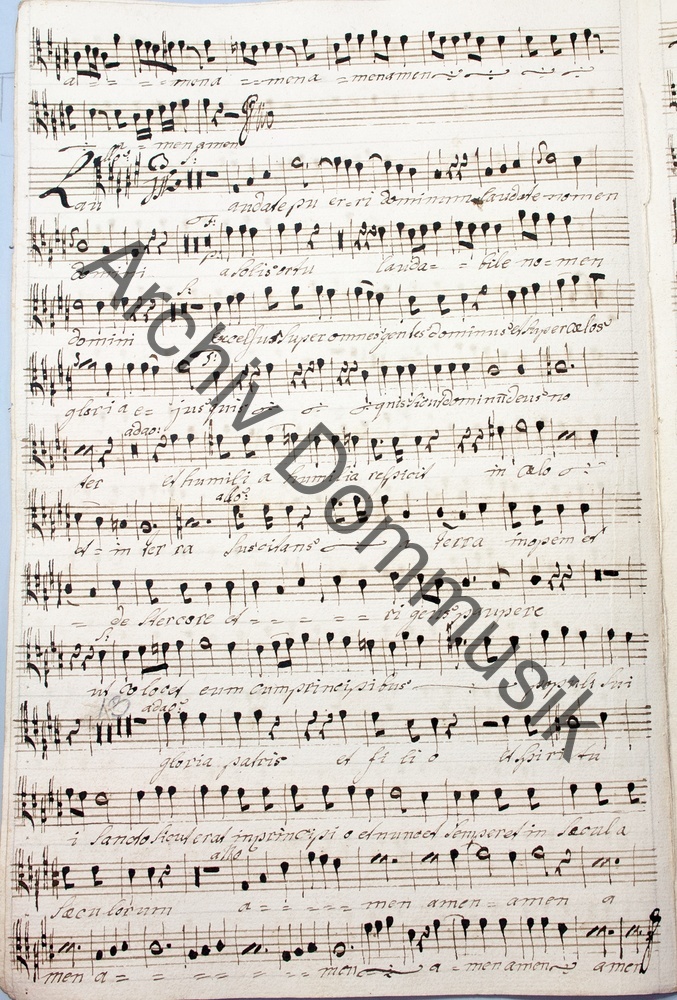 a = = = = mena = mena = menamen
allo: a = menamen
Lau audate pu er=ri dominum laudate nomen
domini a solis ortu lauda= = bile no=men
domini excelsus super omnes gentes dominus et super cælos
gloria e= jus quis quis sicut dominus deus no
adao:
ter et humili a humilia respicit in cælo
allo:
et = in ter ra suscitans terra inopem et
= de stercore et = = = = = ri gens paupere
ut coloced eum cum principibus populi sui
adao:
gloria patris et fi li o et spiri tu
i sancto sicut erat in principi o et nunc et semper et in sæcula
allo
sæculorum a = = = = = men amen = amen a
men a = = = = = = = = men a = menamen amen
Archiv Dommusik